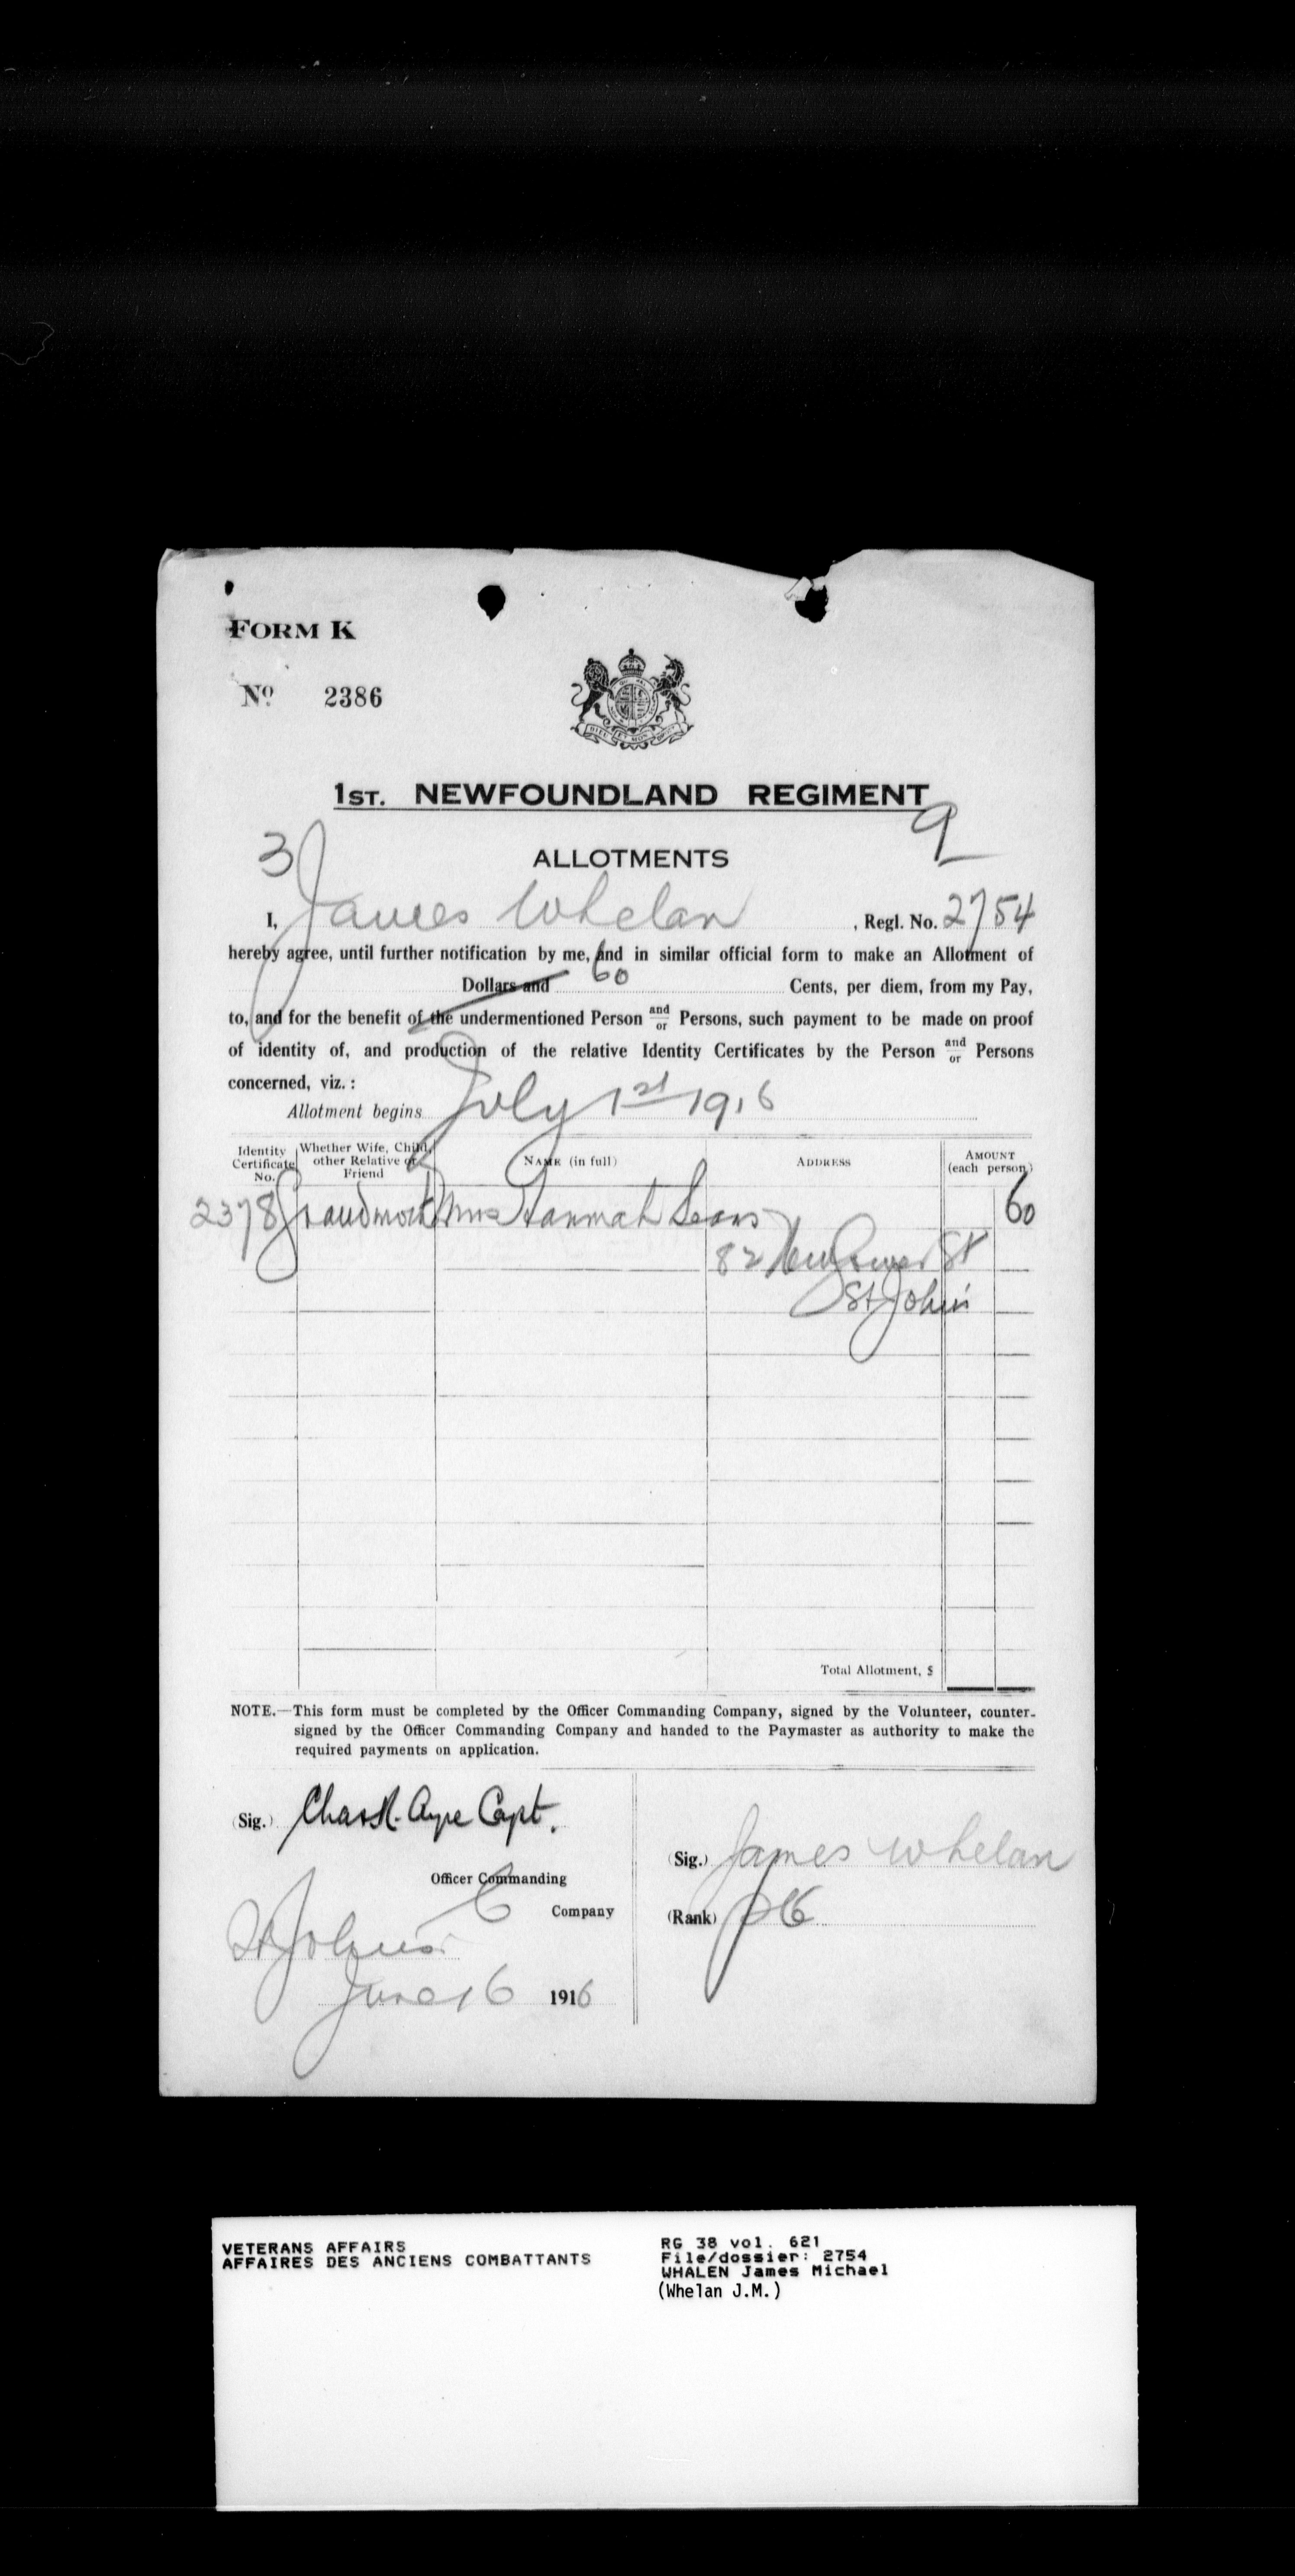 FORM K
No. 2386
DIEU ET MON DROIT
1ST. NEWFOUNDLAND REGIMENT
9
3
ALLOTMENTS
I, James Whelan, Regl. No. 2754
hereby agree, until further notification by me, and in similar official form to make an Allotment of
Dollars and 60 Cents, per diem, from my Pay,
to, and for the benefit of the undermentioned Person and/or Persons, such payment to be made on proof
of identity of, and production of the relative Identity Certificates by the Person and/or Persons
concerned, viz.:
Allotment begins July 1st 1916
Identity Certificate No. Whether Wife, Child, other Relative or Friend NAME (in full) ADDRESS AMOUNT (each person)
2378 Grandmoth Mrs Hannah Sears 60
82 New Gower St
St John's
Total Allotment, $
NOTE.—This form must be completed by the Officer Commanding Company, signed by the Volunteer, counter-
signed by the Officer Commanding Company and handed to the Paymaster as authority to make the
required payments on application.
(Sig.) Chas R. Ayre Capt.
Officer Commanding
C Company
St Johns
June 16 1916
(Sig.) James Whelan
(Rank)
VETERANS AFFAIRS
AFFAIRES DES ANCIENS COMBATTANTS
RG 38 vol. 621
File/dossier: 2754
WHALEN James Michael
(Whelan J.M.)